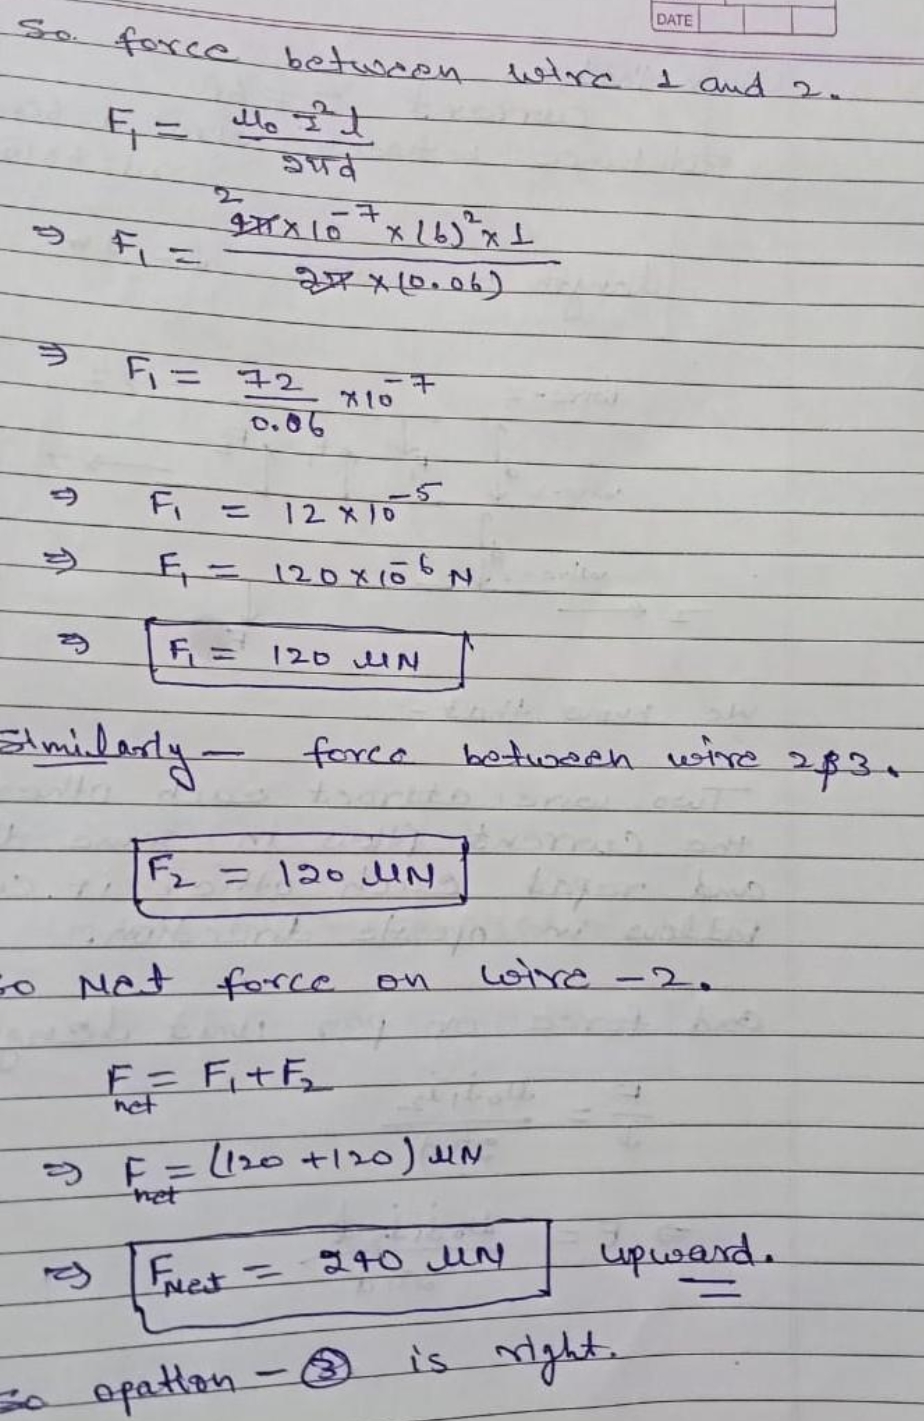 DATE
So force between wire 1 and 2.
F₁ = μ₀ I² l / 2πd
⇒ F₁ = 2 4π × 10⁻⁷ × (6)² × 1 / 2π × (0.06)
⇒ F₁ = 72 / 0.06 × 10⁻⁷
⇒ F₁ = 12 × 10⁻⁵
⇒ F₁ = 120 × 10⁻⁶ N
⇒ F₁ = 120 μN
Similarly — force between wire 2 & 3.
F₂ = 120 μN
so Net force on wire - 2.
F net = F₁ + F₂
⇒ F net = (120 + 120) μN
⇒ F Net = 240 μN upward.
so opation - ③ is right.